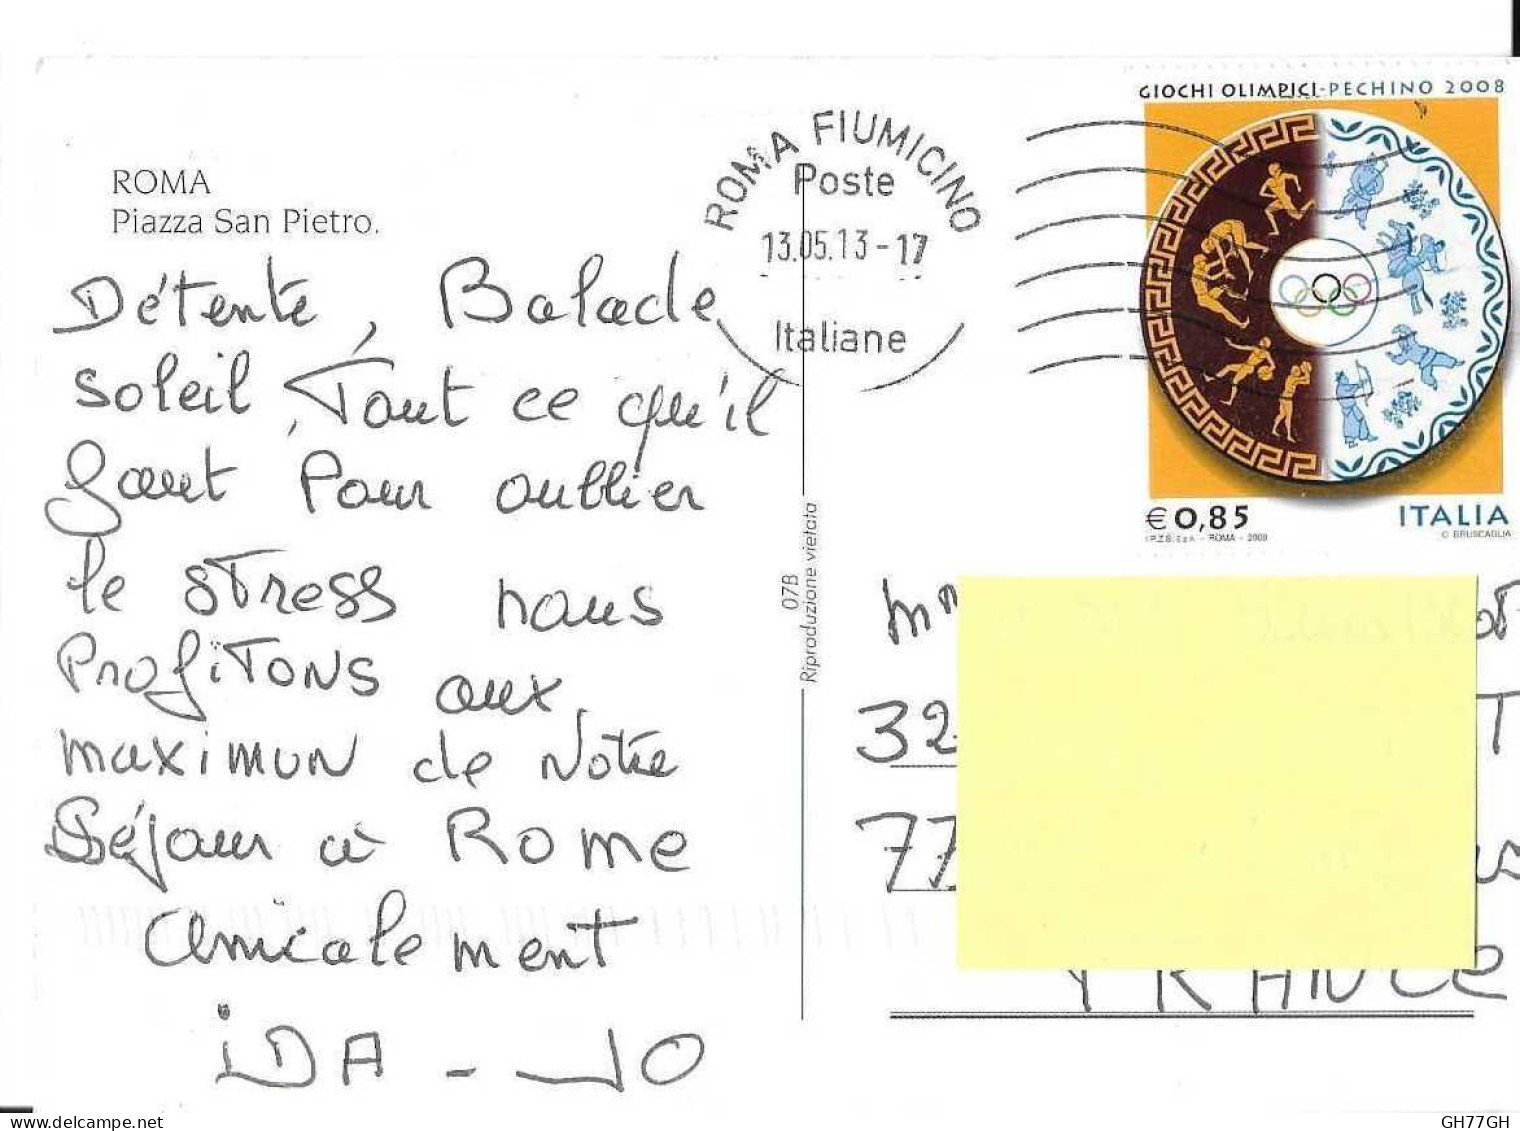 ROMA
Piazza San Pietro.
Détente, Balade
soleil, Tout ce qu'il
faut Pour oublier
le stress nous
Profitons aux
maximun de Notre
Séjour à Rome
amicalement
iDA - JO
07B
Riproduzione vietata
ROMA FIUMICINO
Poste
13.05.13-17
Italiane
GIOCHI OLIMPICI-PECHINO 2008
€0,85
ITALIA
I.P.Z.S. S.p.A. - ROMA - 2008
© BRUSCAGLIA
32
77
FRANCE
GH77GH